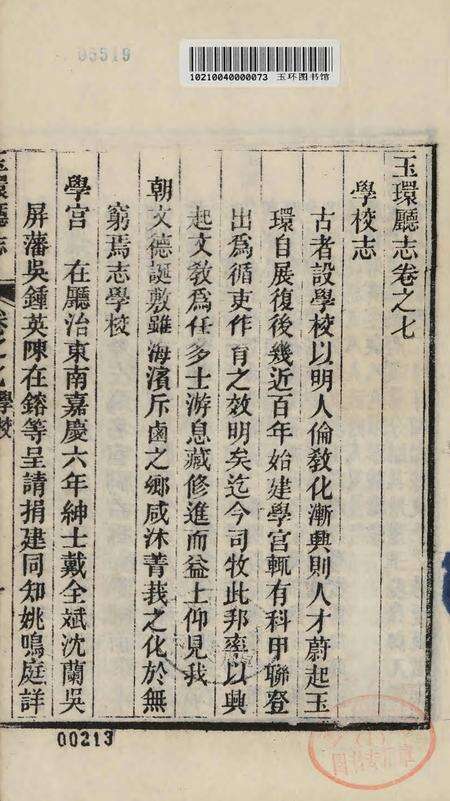 06519
10210040000073 玉环图书馆
玉環廳志卷之七
學校志
古者設學校以明人倫敎化漸興則人才蔚起玉
環自展復後幾近百年始建學宮輒有科甲聯登
出爲循吏作育之效明矣迄今司牧此邦率以興
起文教爲任多士游息藏修進而益上仰見我
朝文德誕敷雖海濱斥鹵之鄉咸沐菁莪之化於無
窮焉志學校
學宮 在廳治東南嘉慶六年紳士戴全斌沈蘭吳
屏藩吳鍾英陳在鎔等呈請捐建同知姚鳴庭詳
玉環廳志 卷之七學校
00213